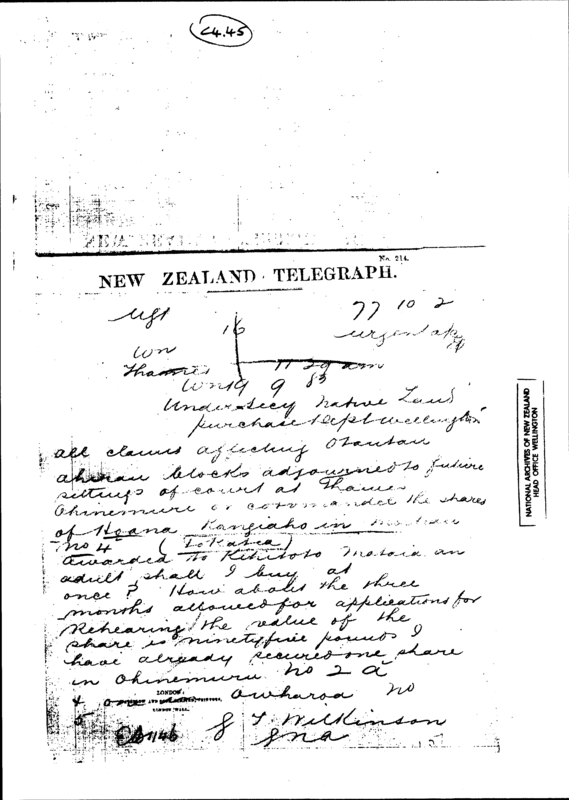 C4.45
No. 214.
NEW ZEALAND TELEGRAPH.
Ugt
77 10 2
16
urgent
Wn
Thames
11 29 am
Wn 19 9 83
Under Secy Native Land
purchase Dept Wellington
all claims affecting Otautau
blocks adjourned to future
sittings of court at Thames
Ohinemuri or coromandel the shares
of Hoana Rangiaho in
No 4 (
awarded to Kihitoto Mataia an
adult shall I buy at
once? How about the three
months allowed for applications for
Rehearing the value of the
share is ninety five pounds I
have already secured one share
in Ohinemuri No 2 a
LONDON.
4 Owharoa No
5
1146
G T Wilkinson
NATIONAL ARCHIVES OF NEW ZEALAND
HEAD OFFICE WELLINGTON